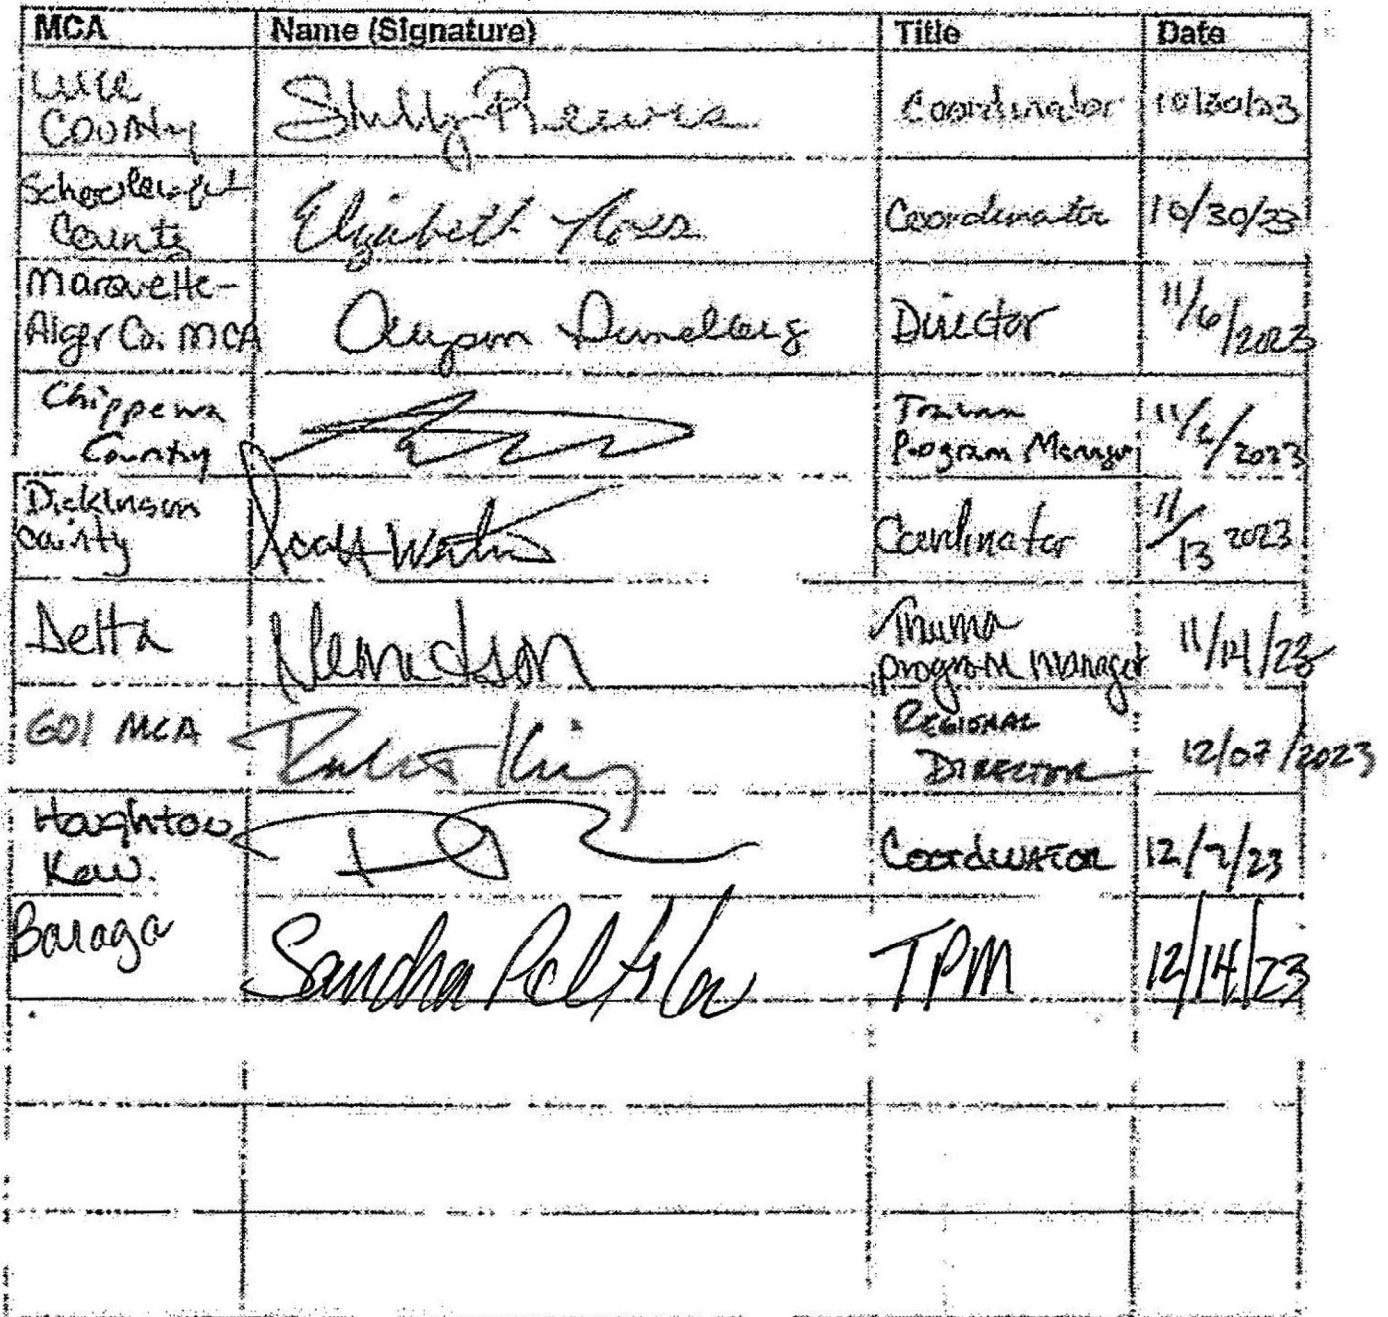 MCA Name (Signature) Title Date
Luce
County Shelly Coordinator 10/30/23
Schoolcraft
County Elizabeth Coordinator 10/30/23
Marquette-
Alger Co. MCA Director 11/6/2023
Chippewa
County Trauma
Program Manager 11/6/2023
Dickinson
County Scott Coordinator 11/13 2023
Delta Trauma
program Manager 11/14/23
GOI MCA King REGIONAL
DIRECTOR 12/07/2023
Houghton
Kew. Coordinator 12/7/23
Baraga Sandra TPM 12/14/23